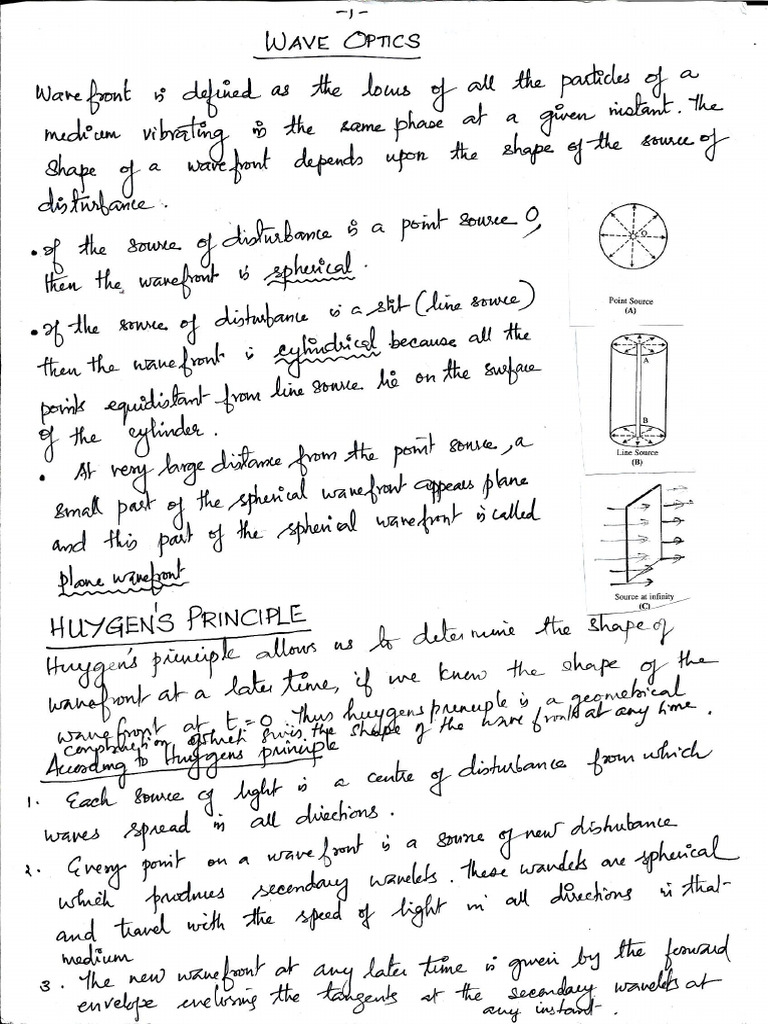 -1-
WAVE OPTICS
Wavefront is defined as the locus of all the particles of a
medium vibrating in the same phase at a given instant. The
shape of a wavefront depends upon the shape of the source of
disturbance.
• If the source of disturbance is a point source O,
then the wavefront is spherical.
O
Point Source
(A)
• If the source of disturbance is a slit (line source)
then the wavefront is cylindrical because all the
points equidistant from line source lie on the surface
of the cylinder.
A
B
Line Source
(B)
• At very large distance from the point source, a
small part of the spherical wavefront appears plane
and this part of the spherical wavefront is called
plane wavefront
Source at infinity
(C)
HUYGEN'S PRINCIPLE
Huygen's principle allows us to determine the shape of
wavefront at a later time, if we know the shape of the
wavefront at t=0. Thus huygens principle is a geometrical
construction which gives the shape of the wave fronts at any time.
According to Huygens principle
1. Each source of light is a centre of disturbance from which
waves spread in all directions.
2. Every point on a wavefront is a source of new disturbance
which produces secondary wavelets. These wavelets are spherical
and travel with the speed of light in all directions in that
medium
3. The new wavefront at any later time is given by the forward
envelope enclosing the tangents at the secondary wavelets at
any instant.